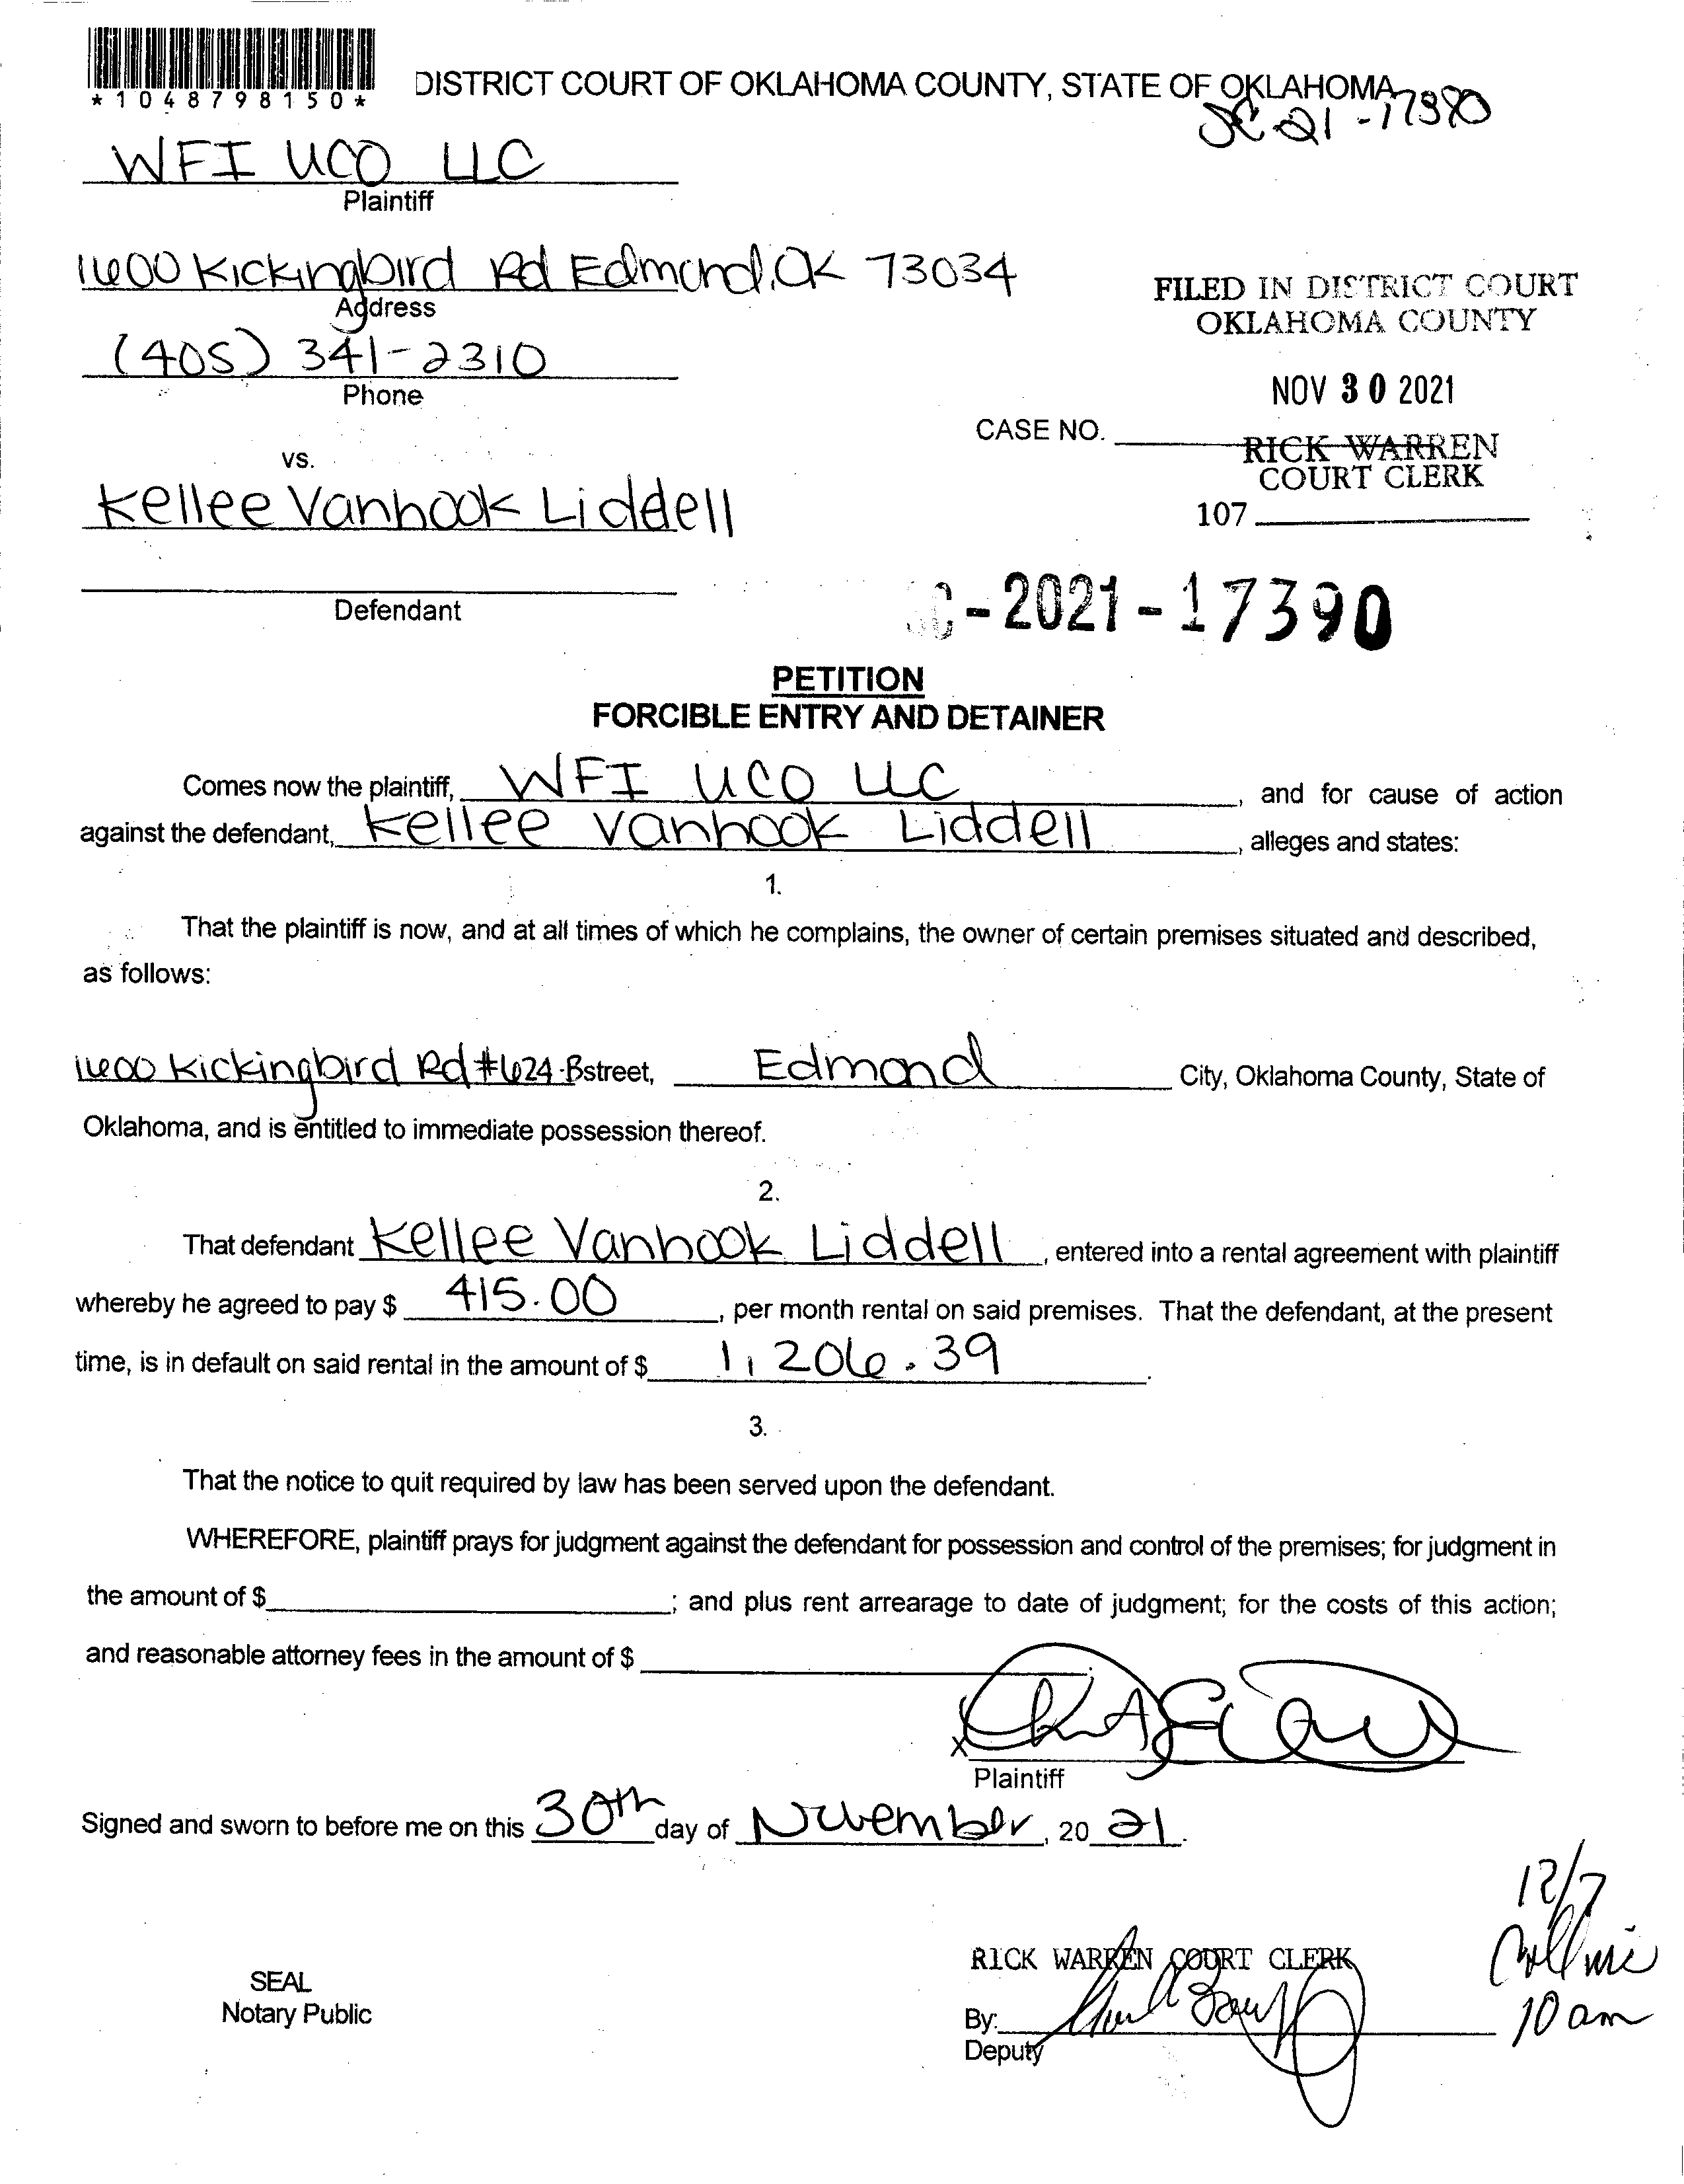 *1048798150*
DISTRICT COURT OF OKLAHOMA COUNTY, STATE OF OKLAHOMA
SC 21-17390
WFI UCO LLC
Plaintiff
1600 Kickingbird Rd Edmond, OK 73034
Address
(405) 341-2310
Phone
FILED IN DISTRICT COURT
OKLAHOMA COUNTY
NOV 30 2021
CASE NO.
RICK WARREN
COURT CLERK
107
vs.
Kellee Vanhook Liddell
Defendant
SC-2021-17390
PETITION
FORCIBLE ENTRY AND DETAINER
Comes now the plaintiff, WFI UCO LLC, and for cause of action
against the defendant, Kellee Vanhook Liddell, alleges and states:
1.
That the plaintiff is now, and at all times of which he complains, the owner of certain premises situated and described,
as follows:
1600 Kickingbird Rd #624-B street, Edmond City, Oklahoma County, State of
Oklahoma, and is entitled to immediate possession thereof.
2.
That defendant Kellee Vanhook Liddell, entered into a rental agreement with plaintiff
whereby he agreed to pay $ 415.00, per month rental on said premises. That the defendant, at the present
time, is in default on said rental in the amount of $ 1,206.39.
3.
That the notice to quit required by law has been served upon the defendant.
WHEREFORE, plaintiff prays for judgment against the defendant for possession and control of the premises; for judgment in
the amount of $; and plus rent arrearage to date of judgment; for the costs of this action;
and reasonable attorney fees in the amount of $.
X
Plaintiff
Signed and sworn to before me on this 30th day of November, 20 21.
12/7
10 am
SEAL
Notary Public
RICK WARREN COURT CLERK
By:
Deputy